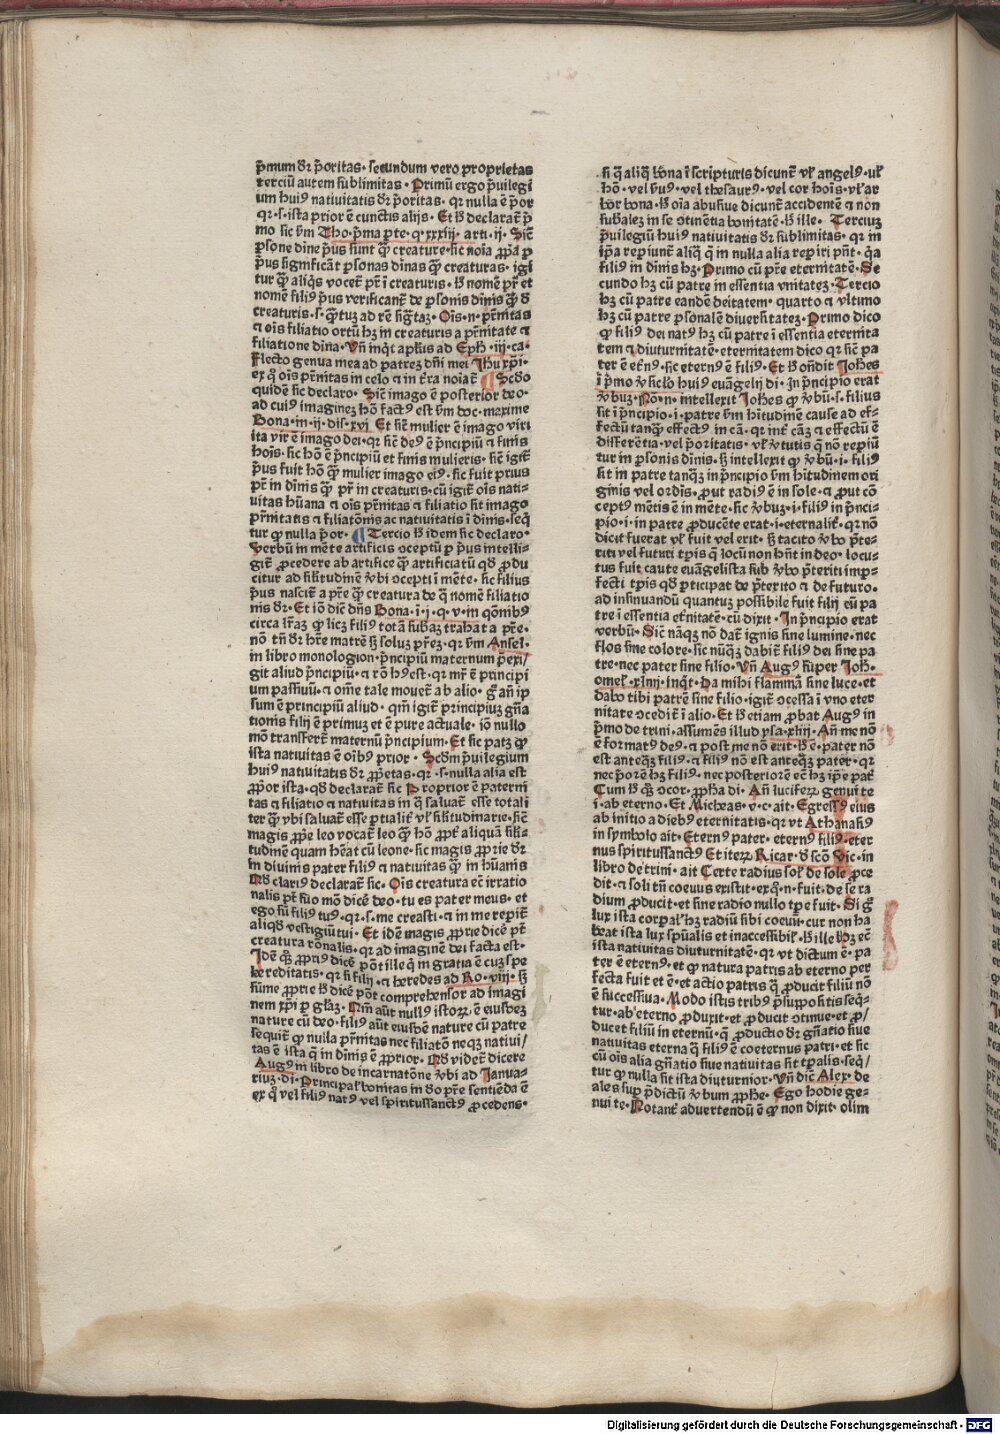 p̄mum dr̄ p̄oritas· secundum vero proprietas
terciū autem sublimitas· Primū ergo p̄uilegi
um huiꝰ natiuitatis dr̄ p̄oritas· qr nulla ē p̄or
qr·s·ista prior ē cunctis alijs· Et h̄ declarat̄ p̄
mo sic ẜm Tho·p̄ma p̄te·q·xxxiij·arti·ij· Sic̄
ꝑsone diīne p̄us sunt qͣ creature·sic noīa ꝓpͥa ꝑ
p̄us significāt ꝑsonas diīnas qͣ creaturas· igi
tur qͣ aliqͥs vocet̄ pr̄ ī creaturis· h̄ nomē pr̄ et
nomē filiꝰ p̄us verificant̄ de ꝑsonis diīnis qͣ d̄
creaturis·s·qͣtuꝫ ad rē sigͣtaꝫ· Oīs·n·pr̄nitas
⁊ oīs filiatio ortū hꝫ in creaturis a pr̄nitate ⁊
filiatione diīna· Vn̄ inqͥt apl̄us ad Eph·iij·ca·
Flecto genua mea ad patreꝫ dn̄i mei Jhu xp̄i·
ex qͦ oīs pr̄nitas in celo ⁊ in t̄ra noīat̄ ¶ Scd̄o
quidē sic declaro· Sic̄ imago ē posterior deo·
ad cuiꝰ imagineꝫ hō factꝰ est ẜm doc·maxime
Bona·in·ij·dis·xvj Et sic̄ mulier ē imago viri
ita vir ē imago dei·qr sic̄ deꝰ ē p̄ncipiū ⁊ finis
hoīs·sic hō ē p̄ncipiū et finis mulieris· sic̄ igit̄
p̄us fuit hō qͣ mulier imago eiꝰ·sic fuit prius
pr̄ in diīnis qͣ pr̄ in creaturis·cū igit̄ oīs nati-
uitas hūana ⁊ oīs pr̄nitas ⁊ filiatio sit imago
pr̄nitatis ⁊ filiatōnis ac natiuitatis ī diīnis·seqͥ
tur ꝙ nulla p̄or· ¶ Tercio h̄ idem sic declaro·
Verbū in mēte artificis ꝯceptū ꝑ p̄us intelli-
git̄ ꝓcedere ab artifice qͣ artificiatū qd̄ ꝓdu
citur ad sil̄itudinē v̄bi ꝯcepti ī mēte· sic filius
p̄us nascit̄ a pr̄e qͣ creatura de qͣ nomē filiatio
nis dr̄· Et iō dic̄ dn̄s Bona·i·j·q·v·in qōnibꝰ
circa lr̄aꝫ qͣ licꝫ filiꝰ totā sub̄aꝫ trahat a pr̄e·
nō tn̄ dr̄ hr̄e matrē sꝫ soluꝫ pr̄eꝫ·qr ẜm Ansel·
in libro monologion·p̄ncipiū maternum p̄exi/
git aliud p̄ncipiū·⁊ rō hꝰ est·qr mr̄ ē principi
um passiuū·⁊ om̄e tale mouet̄ ab alio· gͦ an̄ ip
sum ē principiū aliud· qm̄ igit̄ principiuꝫ gn̄a
tionis filij ē primuꝫ et ē pure actuale· iō nullo
mō transfert̄ maternū p̄ncipium· Et sic patꝫ ꝙ
ista natiuitas ē oībꝰ prior· Scd̄m p̄uilegium
huiꝰ natiuitatis dr̄ ꝓpͥetas·qr·s·nulla alia est
ꝓpͥor ista·qd̄ declarat̄ sic Propͥor ē paterni
tas ⁊ filiatio ⁊ natiuitas in qͣ saluat̄ esse totali
ter qͣ vbi saluat̄ esse ꝑtialit̄ vl̄ sil̄itudinarie·sic̄
magis ꝓpͥe leo vocat̄ leo qͣ hō ꝓpt̄ aliquā sil̄i-
tudinē quam hēat cū leone·sic magis ꝓprie dr̄
in diuinis pater filiꝰ ⁊ natiuitas qͣ in hūanis
Qd̄ clariꝰ declarat̄ sic· Oīs creatura ec̄ irratio
nalis pt̄ suo mō dicē deo·tu es pater meus· et
ego sū filiꝰ tuꝰ·qr·s·me creasti·⁊ a in me reperit̄
aliqd̄ vestigiū tui· Et idē magis ꝓprie dicē pt̄
creatura rōnalis·qr ad imaginē dei facta est·
Idē qͣꝫ ꝓpriꝰ dicē pōt ille qͥ in gratia ē cuꝫ spe
hereditatis·qr si filij ⁊ heredes ad Ro·viij· sꝫ
sūme ꝓprie h̄ dicē pōt comprehensor ad imagi
nem xp̄i ꝑ gl̄aꝫ· Nm̄ aūt nullꝰ istoꝝ ē eiusdeꝫ
nature cū deo·filiꝰ aūt eiusdē nature cū patre
sequit̄ ꝙ nulla pr̄nitas nec filiatō neqꝫ natiui/
tas ē ista qͣ in diīnis ē ꝓprior· Qd̄ videt̄ dicere
Augꝰ in libro de incarnatōne v̄bi ad Janua-
riuꝫ·di·Principal̄ bonitas in dō pr̄e sentiēda ē
ex qͦ vel filiꝰ natꝰ vel spiritussanctꝰ ꝓcedens·
si qͣ aliqͣ bona ī scripturis dicunt̄ vl̄ angelꝰ·vl̄
hō·vel ẜuꝰ·vel thesaurꝰ·vel cor hoīs·vl̄ ar
bor bona· h̄ oīa abusiue dicunt̄ accidentē ⁊ non
sub̄aleꝫ in se ꝯtinētia bonitatē· h̄ ille· Terciuꝫ
p̄uilegiū huiꝰ natiuitatis dr̄ sublimitas· qr in
ip̄a reperiunt̄ aliqͣ qͣ in nulla alia reperiri pn̄t· qͣa
filiꝰ in diīnis hꝫ· Primo cū pr̄e eternitatē· Se
cundo hꝫ cū patre in essentia vnitateꝫ· Tercio
hꝫ cū patre eandē deitatem· quarto ⁊ vltimo
hꝫ cū patre ꝑsonalē diuersitateꝫ· Primo dico
ꝙ filiꝰ dei natꝰ hꝫ cū patre ī essentia eternita
tem ⁊ diuturnitatē·eternitatem dico qr sic̄ pa
ter ē et̄nꝰ·sic eternꝰ ē filiꝰ· Et h̄ on̄dit Johēs
ī p̄mo v̄siculo huiꝰ euāgelij di· In p̄ncipio erat
v̄buꝫ· Nō·n·intellexit Johēs ꝙ v̄bū·s·filius
sit ī p̄ncipio·i·patre ẜm hitudinē cause ad ef-
fectū tanqͣ effectꝰ in cā· qr int̄ cāꝫ ⁊ effectū ē
differētia·vel p̄oritatis· vl̄ v̄tutis qͣ nō reperiū
tur in ꝑsonis diīnis· sꝫ intellexit ꝙ v̄bū·i·filiꝰ
sit in patre tanqͣꝫ in p̄ncipio ẜm hitudinem ori
ginis vel ordīs· ꝓut radiꝰ ē in sole· ⁊ ꝓut cō
ceptꝰ mētis ē in mēte·sic v̄buꝫ·i·filiꝰ in p̄nci-
pio·i·in patre ꝓducēte erat·i·eternalit̄· qr nō
dicit fuerat vl̄ fuit vel erit· sꝫ tacito v̄bo p̄te-
riti vel futuri tꝑis qͥ locū non hn̄t in deo· locu-
tus fuit caute euāgelista sub v̄bo p̄teriti imꝑ-
fecti tꝑis qd̄ ꝑticipat de p̄terito ⁊ de futuro·
ad insinuandū quantuꝫ possibile fuit filij cū pa
tre ī essentia et̄nitatē·cū dixit· In p̄ncipio erat
verbū· Sic̄ nāqꝫ nō dat̄ ignis sine lumine·nec
flos sine colore·sic nūqͣꝫ dabit̄ filiꝰ dei sine pa
tre·nec pater sine filio· Vn̄ Augꝰ super Joh·
omel·xlnij·inqͥt· Da mihi flammā sine luce·et
dabo tibi patrē sine filio·igit̄ ꝯcessa ī vno eter
nitate ꝯcedit̄ ī alio· Et h̄ etiam ꝓbat Augꝰ in
p̄mo de trini·assumēs illud ysa·xliij· An̄ me nō
ē formatꝰ deꝰ·⁊ a post me nō erit· h̄ ē·pater nō
est anteqͣꝫ filiꝰ·⁊ filiꝰ nō est anteqͣꝫ pater·qr
nec p̄orē hꝫ filiꝰ·nec posteriorē ec̄ hꝫ ip̄e pat̄
Cum h̄ qͣꝫ ꝯcor·ꝓpha di· An̄ luciferꝫ genui te
i·ab eterno· Et Micheas·v·c·ait· Egressꝰ eius
ab initio a diebꝰ eternitatis·qr vt Athanasiꝰ
in symbolo ait· Eternꝰ pater·eternꝰ filiꝰ·eter
nus spiritussanctꝰ Et iteꝝ Ricar·d̄ scō Vic·in
libro de trini·ait Certe radius sol̄ de sole ꝓce
dit·⁊ soli tn̄ coeuus existit·ex qͦ·n·fuit·de se ra
dium ꝓducit·et sine radio nullo tꝑe fuit· Si gͦ
lux ista corꝑal̄ hꝫ radiū sibi coeuū·cur non ha
beat ista lux spūalis et inaccessibil̄· h̄ ille hꝫ ec̄
ista natiuitas diuturnitatē·qr vt dictum ē·pa
ter ē eternꝰ·et ꝙ natura patris ab eterno per
fecta fuit et ē·et actio patris qͣ ꝓducit filiū nō
ē successiua· Modo istis tribꝰ p̄suppositis seqͥ-
tur·ab eterno ꝓduxit·et ꝓducit ꝯtinue·et ꝓ/
ducet filiū in eternū·qͣ ꝓductio dr̄ gn̄atio siue
natiuitas eterna qͣ filiꝰ ē coeternus patri·et sic
cū oīs alia gn̄atio siue natiuitas sit tꝑalis·seqͥ/
tur ꝙ nulla sit ista diuturnior· Vn̄ dic̄ Alex·de
ales suꝑ p̄dictū v̄bum ꝓphe· Ego hodie ge-
nui te· Notant̄ aduertendū ē ꝙ non dixit· olim
Digitalisierung gefördert durch die Deutsche Forschungsgemeinschaft - DFG